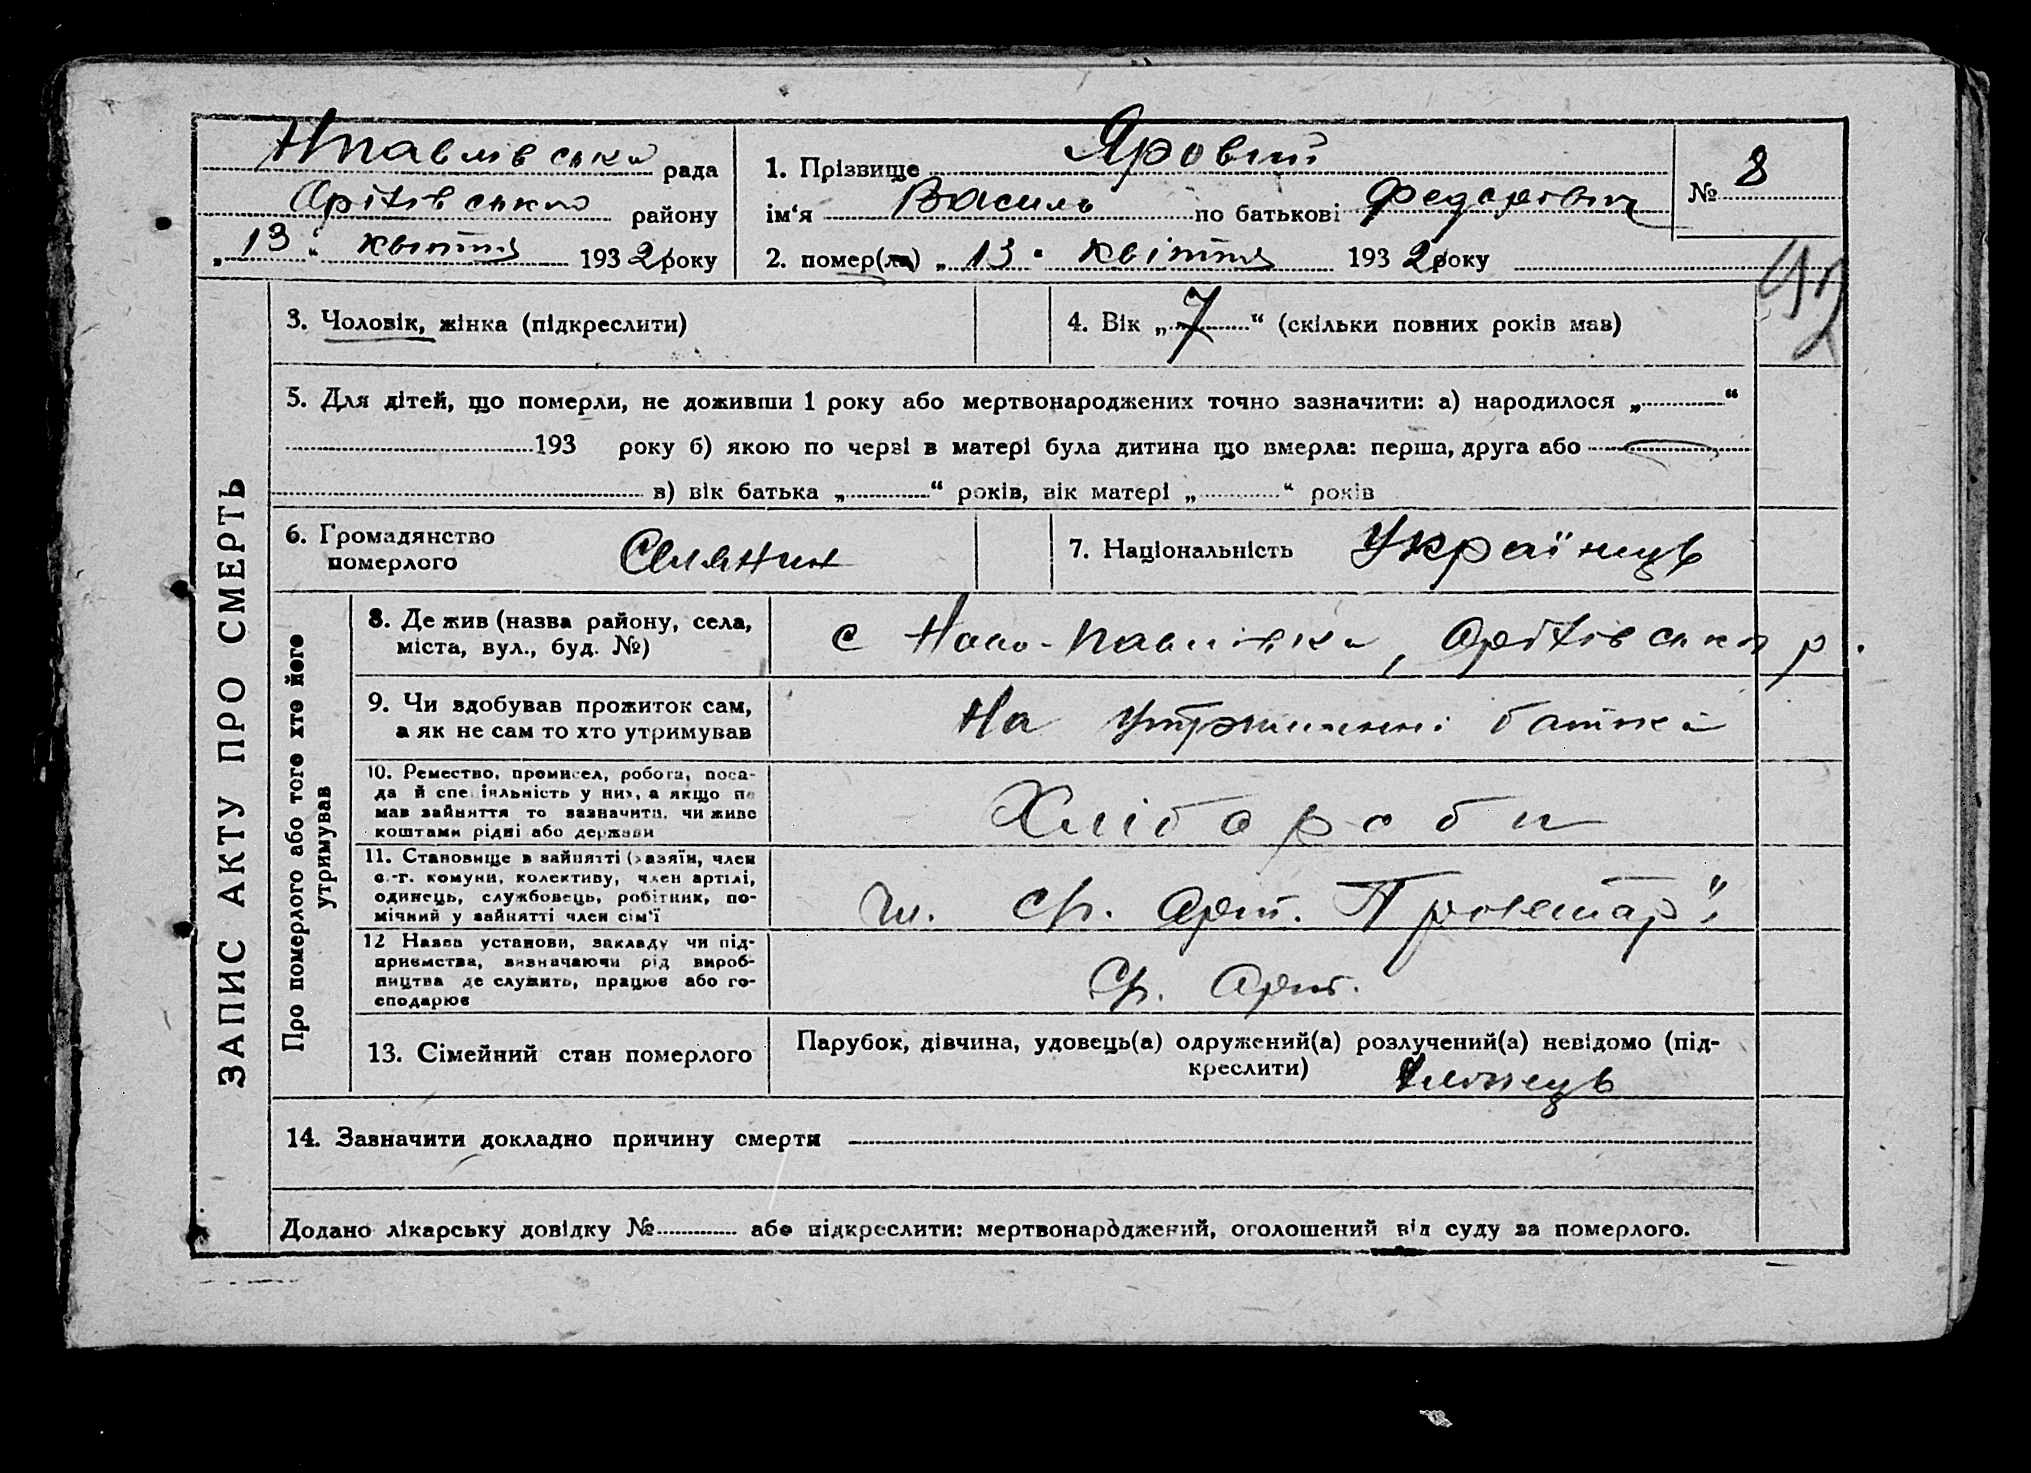 ЗАПИС АКТУ ПРО СМЕРТЬ
Нпавлівська рада
Оріхівського району
„13“ квітня 1932 року
1. Прізвище Яровий
ім‘я Василь по батькові Федорович
№ 8
2. помер(ла) „13“ квітня 1932 року
3. Чоловік, жінка (підкреслити)
4. Вік „7“ (скільки повних років мав)
5. Для дітей, що померли, не доживши 1 року або мертвонароджених точно зазначити: а) народилося „ “
193 року б) якою по черзі в матері була дитина що вмерла: перша, друга або
в) вік батька „ “ років, вік матері „ “ років
6. Громадянство померлого Селянин
7. Національність Українець
Про померлого або того хто його утримував
8. Де жив (назва району, села,
міста, вул., буд. №)
с Ново-Павлівка, Оріхівськ р.
9. Чи здобував прожиток сам,
а як не сам то хто утримував
На утриманні батька
10. Ремество, промисел, робота, поса-
да й спеціяльність у них, а якщо не
мав зайняття то зазначити, чи живе
коштами рідні або держави
Хлібороби
11. Становище в зайнятті (хазяїн, член
с.-г. комуни, колективу, член артілі,
одинець, службовець, робітник, по-
мічний у зайнятті член сім'ї
чл. ср. Арт. Пролетар"
12 Назва установи, закладу чи під-
приємства, визначаючи рід вироб-
ництва де служить, працює або го-
сподарює
Ср. Арт.
13. Сімейний стан померлого
Парубок, дівчина, удовець(а) одружений(а) розлучений(а) невідомо (під-
креслити) Хлопець
14. Зазначити докладно причину смерти
Додано лікарську довідку № або підкреслити: мертвонароджений, оголошений від суду за померлого.